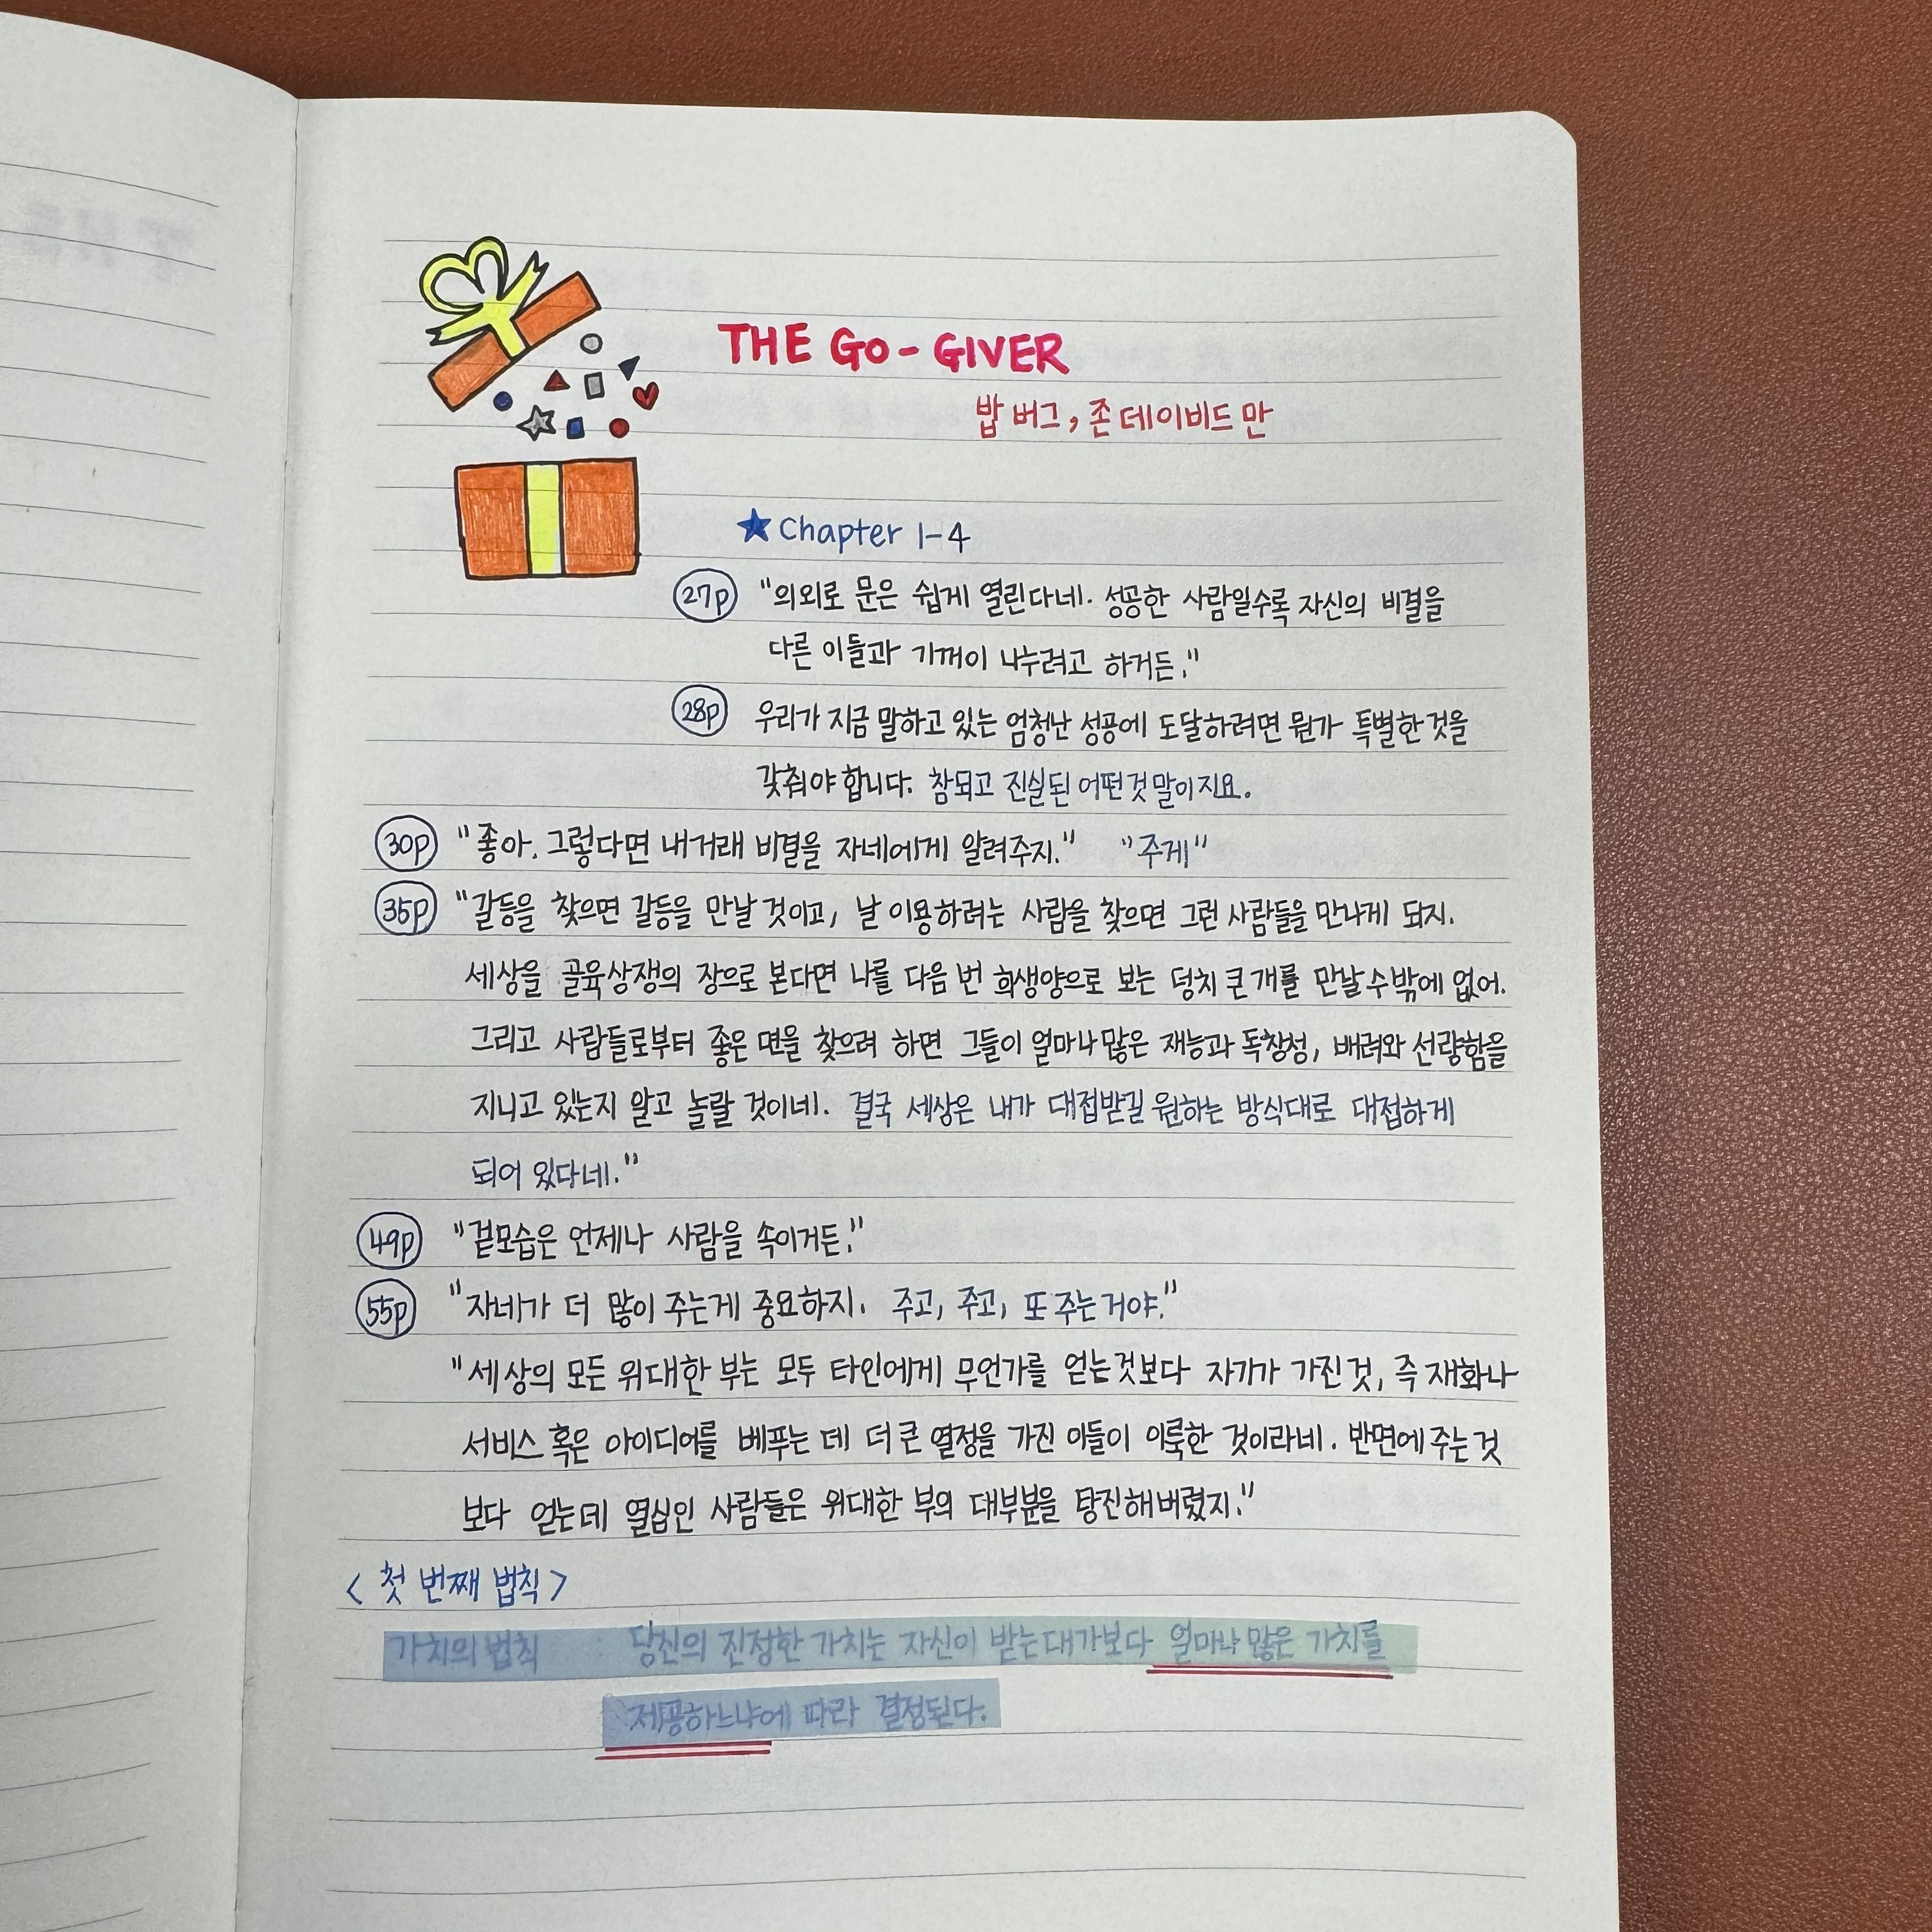 THE GO-GIVER
밥 버그, 존 데이비드 만
★ Chapter 1-4
27p "의외로 문은 쉽게 열린다네. 성공한 사람일수록 자신의 비결을
다른 이들과 기꺼이 나누려고 하거든."
28p 우리가 지금 말하고 있는 엄청난 성공에 도달하려면 뭔가 특별한 것을
갖춰야 합니다. 참되고 진실된 어떤것 말이지요.
30p "좋아. 그렇다면 내 거래 비결을 자네에게 알려주지." "주게"
35p "갈등을 찾으면 갈등을 만날 것이고, 날 이용하려는 사람을 찾으면 그런 사람들을 만나게 되지.
세상을 골육상쟁의 장으로 본다면 나를 다음 번 희생양으로 보는 덩치 큰 개를 만날 수밖에 없어.
그리고 사람들로부터 좋은 면을 찾으려 하면 그들이 얼마나 많은 재능과 독창성, 배려와 선량함을
지니고 있는지 알고 놀랄 것이네. 결국 세상은 내가 대접받길 원하는 방식대로 대접하게
되어 있다네."
49p "겉모습은 언제나 사람을 속이거든."
55p "자네가 더 많이 주는게 중요하지. 주고, 주고, 또 주는거야."
"세상의 모든 위대한 부는 모두 타인에게 무언가를 얻는것보다 자기가 가진 것, 즉 재화나
서비스 혹은 아이디어를 베푸는 데 더 큰 열정을 가진 이들이 이룩한 것이라네. 반면에 주는 것
보다 얻는데 열심인 사람들은 위대한 부의 대부분을 탕진해버렸지."
<첫 번째 법칙>
가치의 법칙 : 당신의 진정한 가치는 자신이 받는 대가보다 얼마나 많은 가치를
제공하느냐에 따라 결정된다.